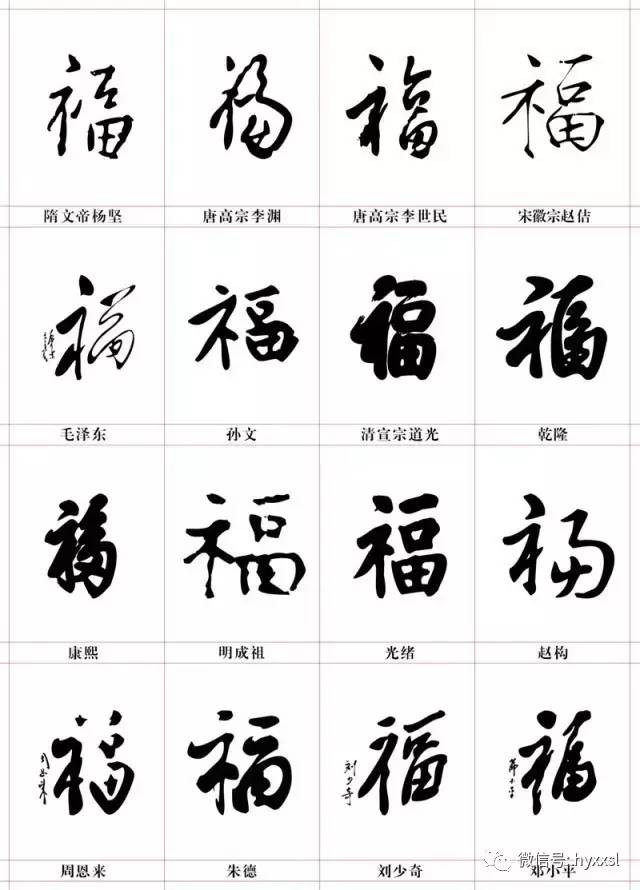 福 福 福 福
隋文帝杨坚 唐高宗李渊 唐高宗李世民 宋徽宗赵佶
福 福 福 福
毛泽东 孙文 清宣宗道光 乾隆
福 福 福 福
康熙 明成祖 光绪 赵构
福 福 福 福
周恩来
刘少奇
邓小平
周恩来 朱德 刘少奇 邓小平
微信号: hyxxsl